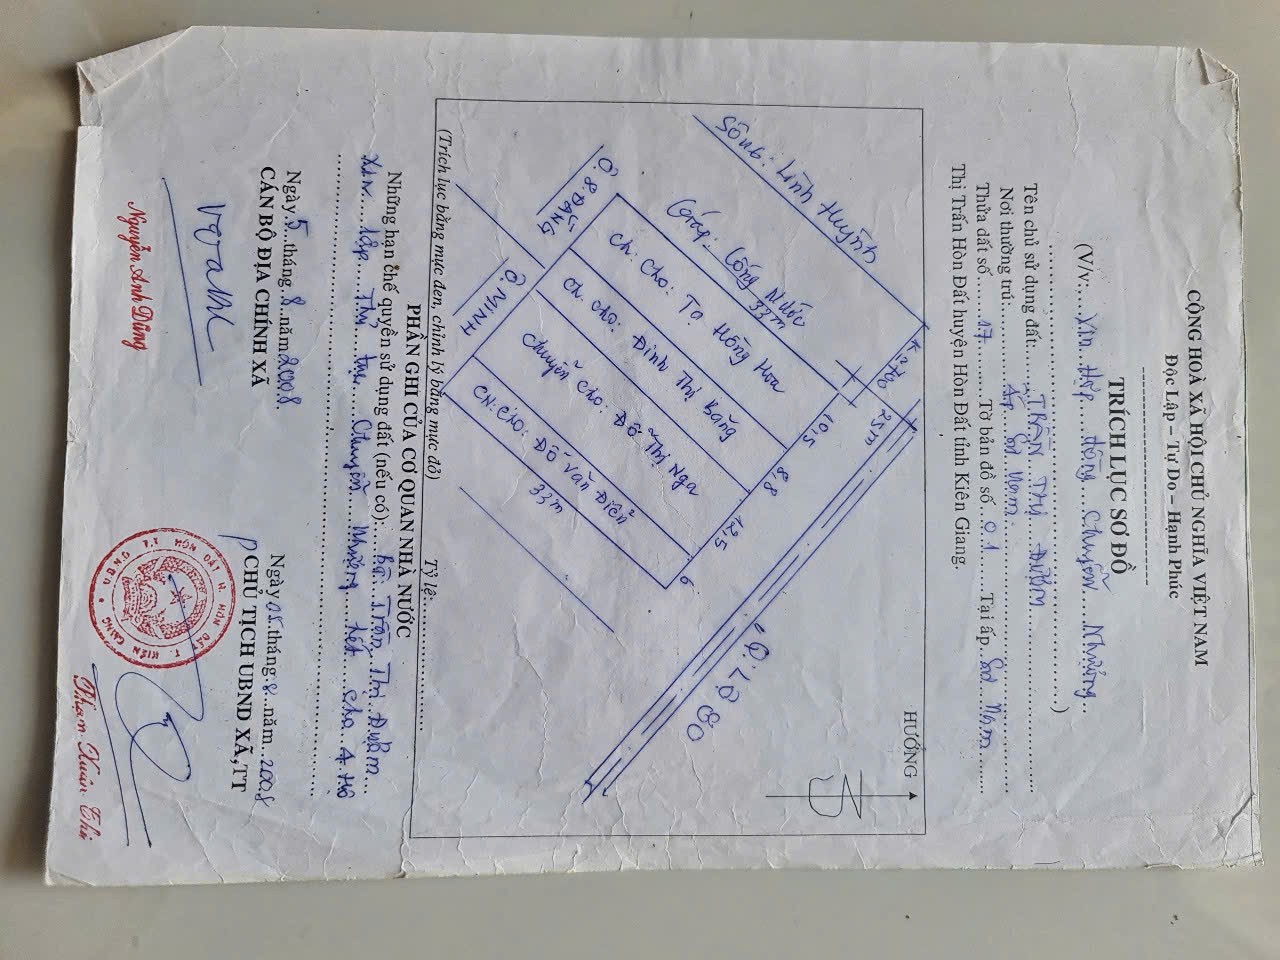 CỘNG HOÀ XÃ HỘI CHỦ NGHĨA VIỆT NAM
Độc Lập – Tự Do – Hạnh Phúc
TRÍCH LỤC SƠ ĐỒ
(V/v:...Xin Hợp đồng Chuyển Nhượng...)
Tên chủ sử dụng đất:...TRẦN THỊ ĐƯỢM
Nơi thường trú:...Ấp Sơn Nam
Thửa đất số...17...Tờ bản đồ số...01...Tại ấp...Sơn Nam...
Thị Trấn Hòn Đất huyện Hòn Đất tỉnh Kiên Giang.
HƯỚNG
Sông: Lình Huỳnh
25m
Giáp: Cống Nước
33m
10,5
Ch: Cho: Tạ Hồng Hoa
8.8
Ch. cho: Đinh Thị Bằng
12,5
Chuyển Cho: Đỗ Thị Nga
6
CN: Cho: Đỗ Văn Điển
33m
Ô. 8. ĐANG
Ô MINH
Q.LỘ 80
(Trích lục bằng mục đen, chỉnh lý bằng mục đỏ)
Tỷ lệ:
PHẦN GHI CỦA CƠ QUAN NHÀ NƯỚC
Những hạn chế quyền sử dụng đất (nếu có):...Bà Trần Thị Đượm...
Xin lập Thủ tục Chuyển Nhượng hết cho 4 Hộ
Ngày 5 tháng 8 năm 2008.
CÁN BỘ ĐỊA CHÍNH XÃ
Nguyễn Anh Dũng
Ngày 05 tháng 8 năm 2008
P CHỦ TỊCH UBND XÃ,TT
UBND T.T HÒN ĐẤT H. HÒN ĐẤT T. KIÊN GIANG
Phạm Xuân Thi